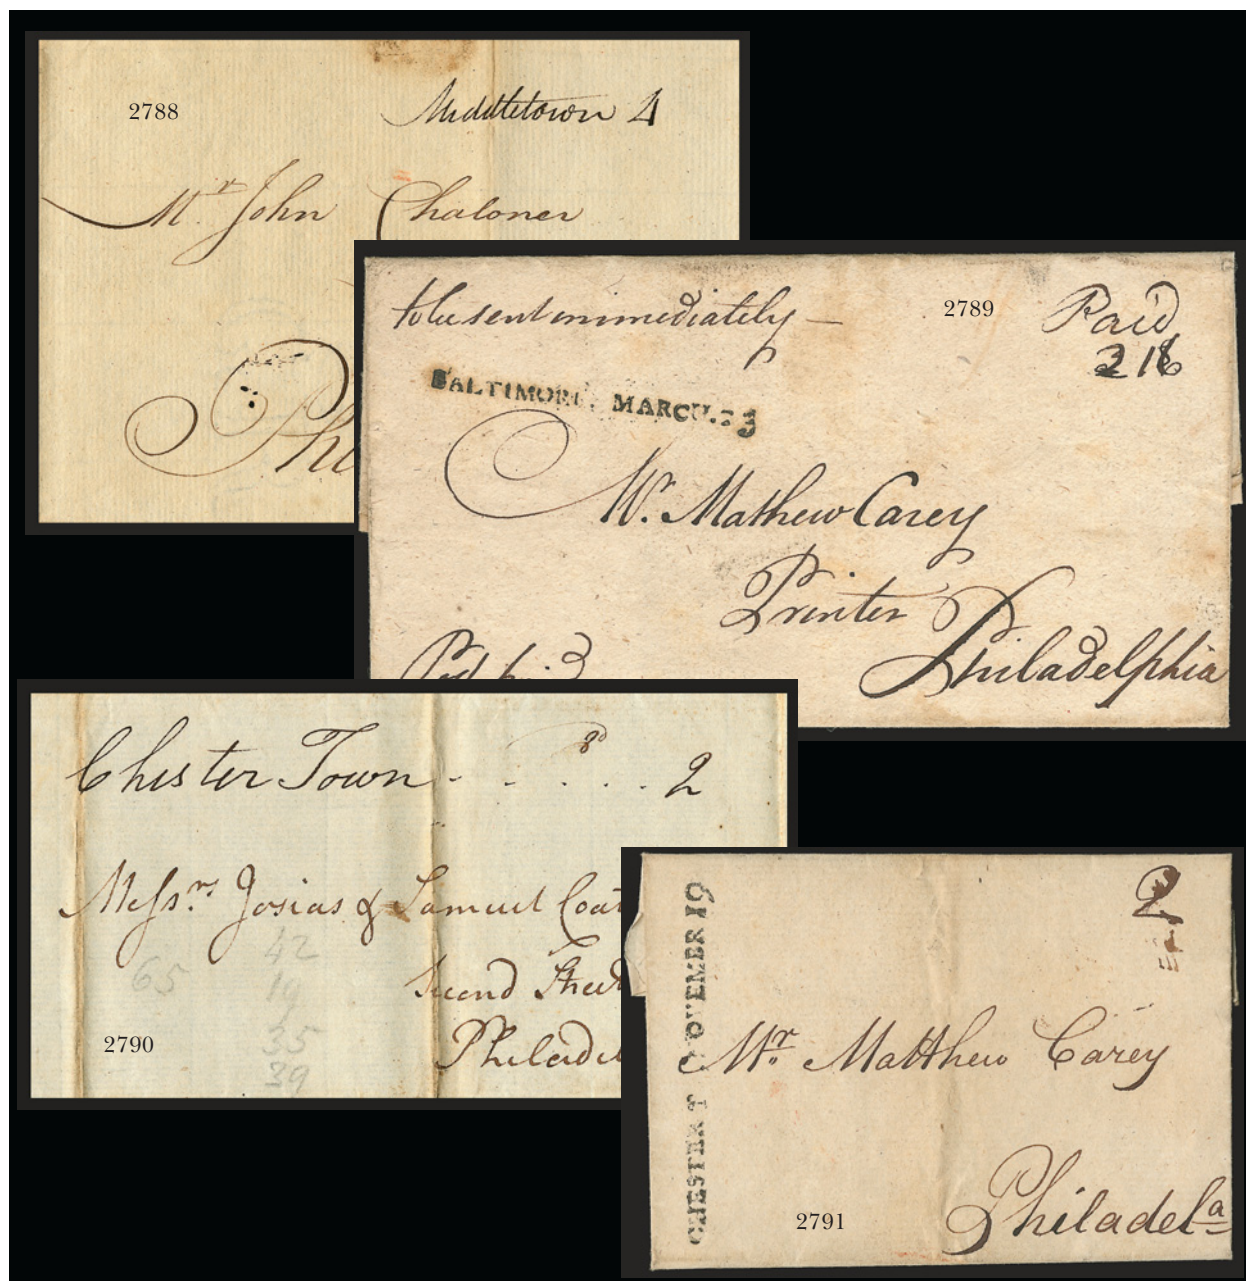 2788
Middletown 4
Mr. John Chaloner
to be sent immediately —
2789
Paid
2 16
BALTIMORE, MARCH.
Mr. Mathew Carey
Printer
Philadelphia
Chester Town - - . . . 2
Messrs. Josias & Samuel Coat
Second Street
Philadel
42
65
19
35
39
2790
2
CHESTER T NOVEMBR 19
Mr. Matthew Carey
Philadela
2791